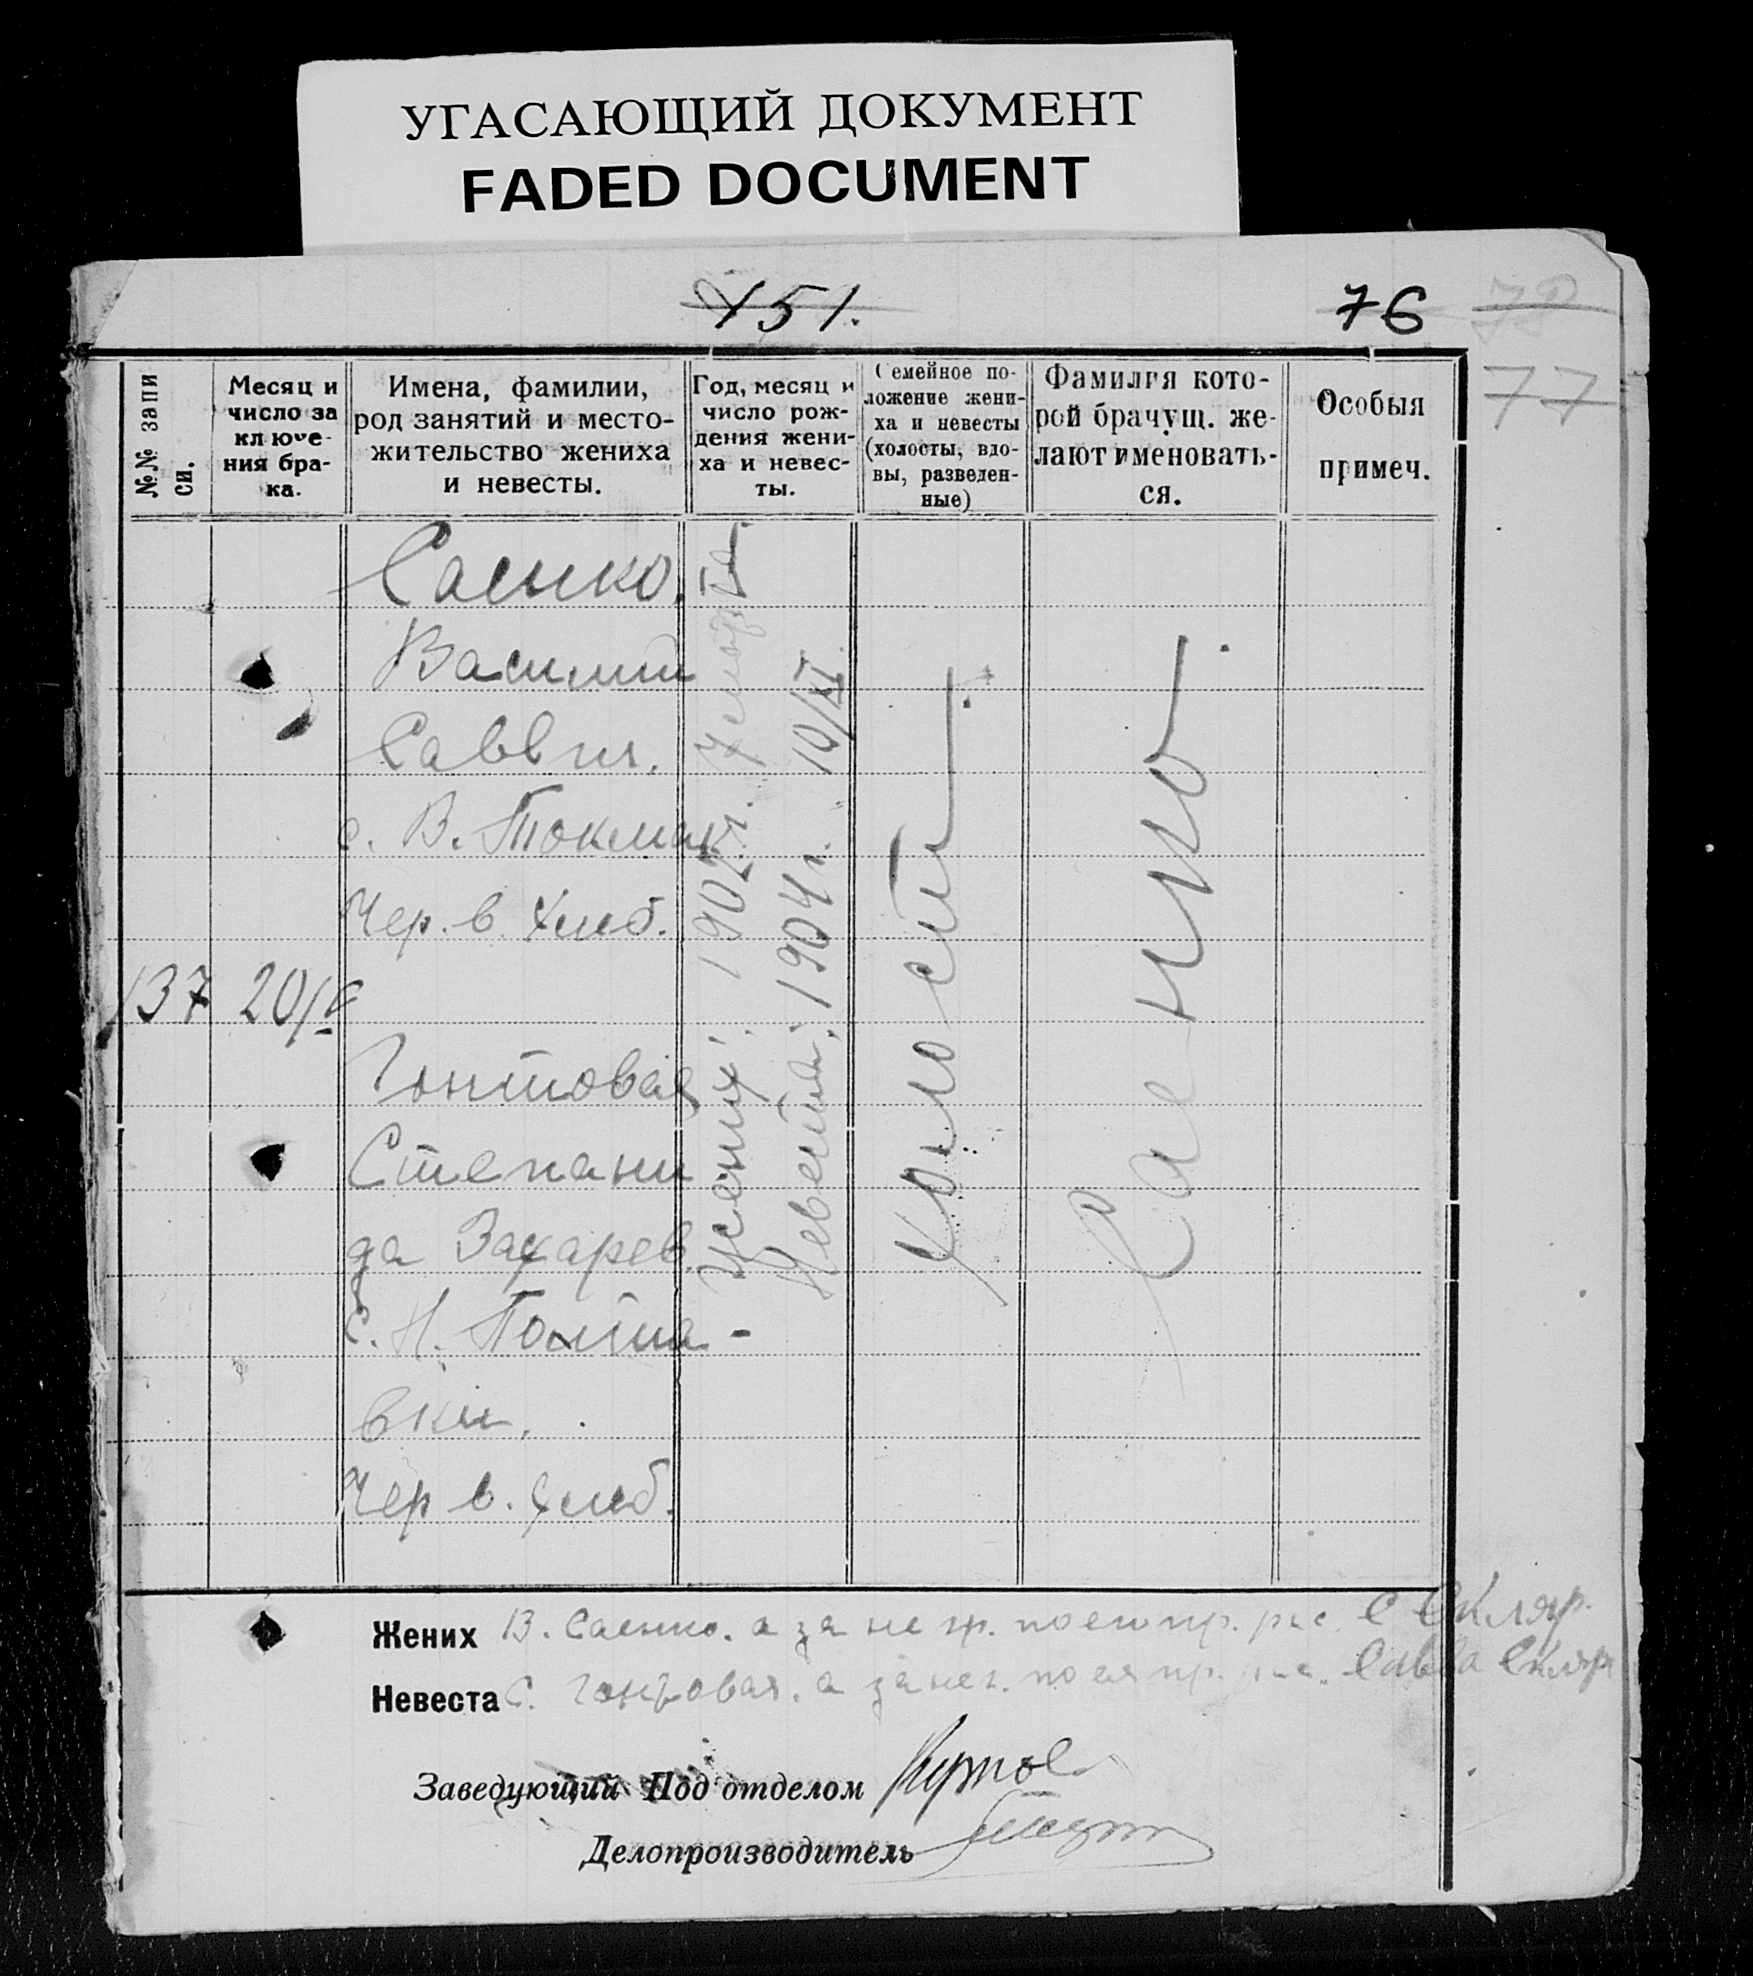 УГАСАЮЩИЙ ДОКУМЕНТ
FADED DOCUMENT
151.
76
77
№№ запи
си.
Месяц и
число за
ключе-
ния бра-
ка.
Имена, фамилии,
род занятий и место-
жительство жениха
и невесты.
Год, месяц и
число рож-
дения жени-
ха и невес-
ты.
Семейное по-
ложение жени-
ха и невесты
(холосты, вдо-
вы, разведен-
ные)
Фамилия кото-
рой брачущ. же-
лают именовать-
ся.
Особыя
примеч.
137
20/V
Саенко.
Василий
Саввич.
с. В. Токмак
Чер. в. хлеб.
Гонтовая
Степани
да Захарев.
с. Н. Полта-
вки.
Чер в. хлеб.
Жених: 1902 г. 7
Невеста: 1904 г. 10/XI
Холосты.
Саенко.
Жених В. Саенко. а за не гр. по его пр. рас. С Скляр.
Невеста С. Гонтовая. а за нег. по ея пр. рас. Савва Скляр
Заведующий Под'отделом
Делопроизводитель